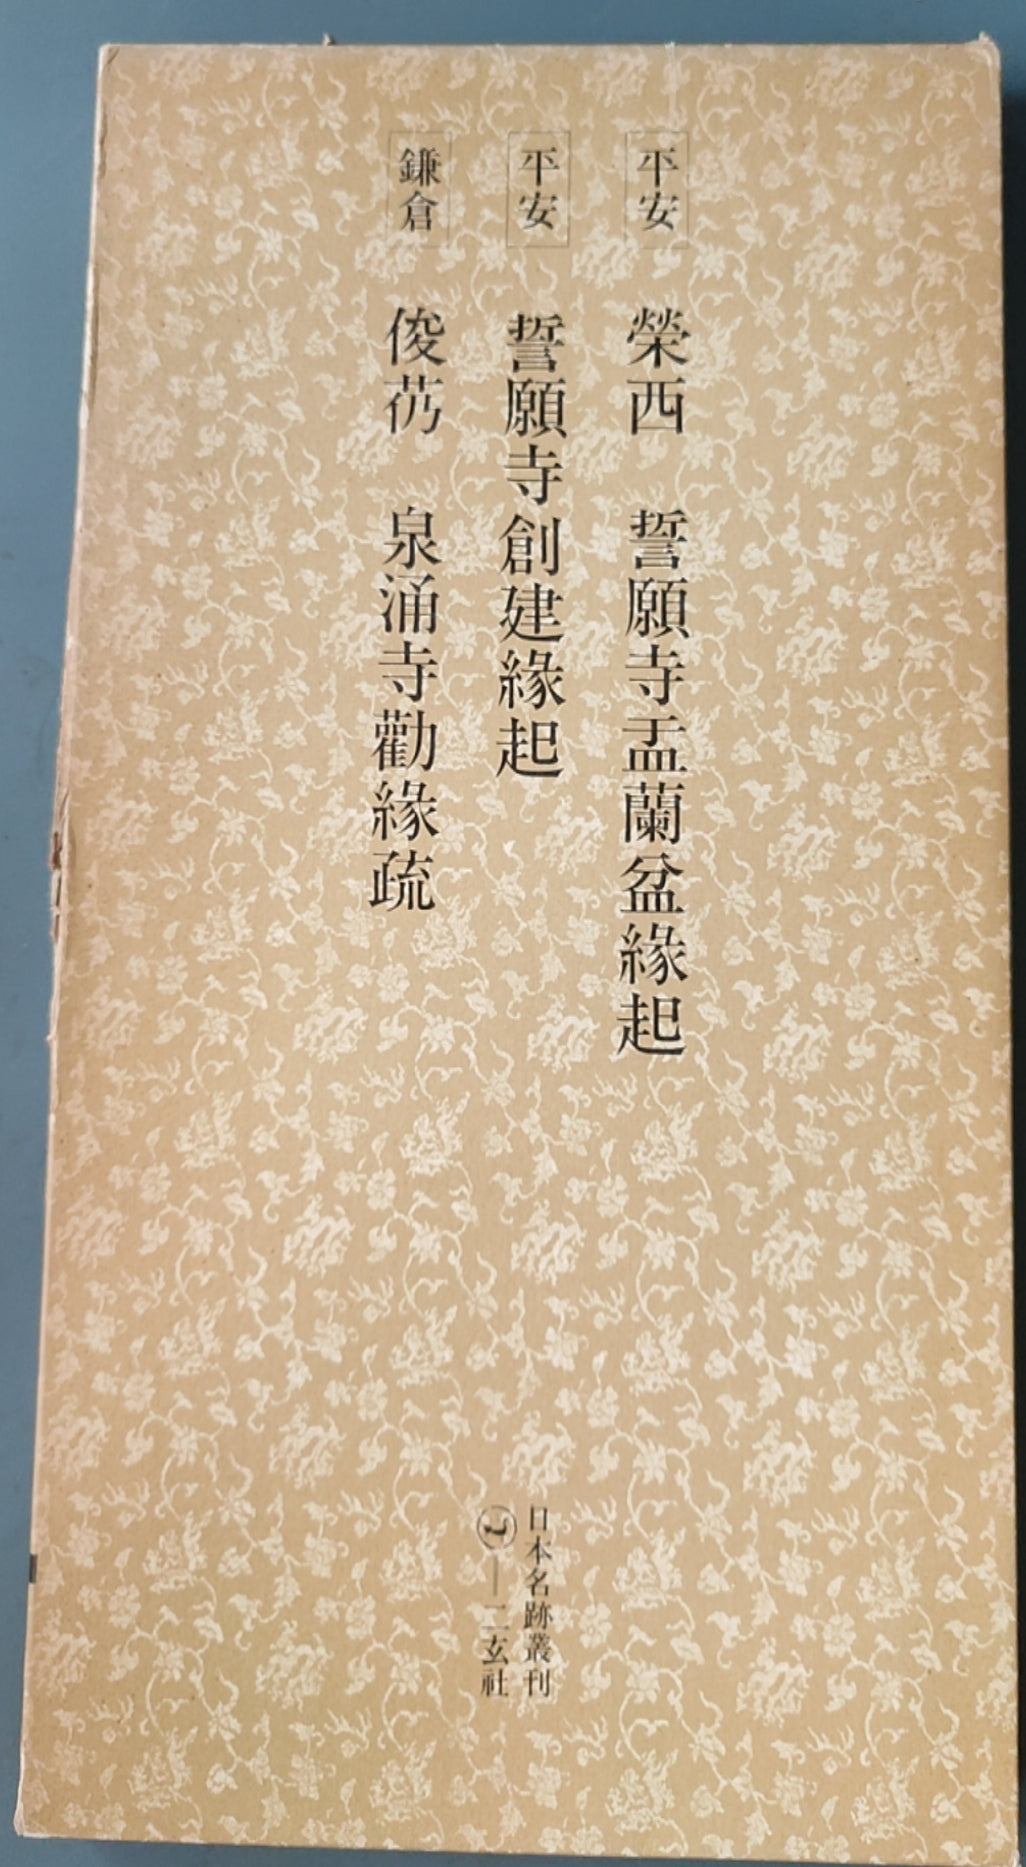 平安 榮西 誓願寺盂蘭盆緣起
平安 誓願寺創建緣起
鎌倉 俊芿 泉涌寺勸緣疏
日本名跡叢刊
㋡—二玄社